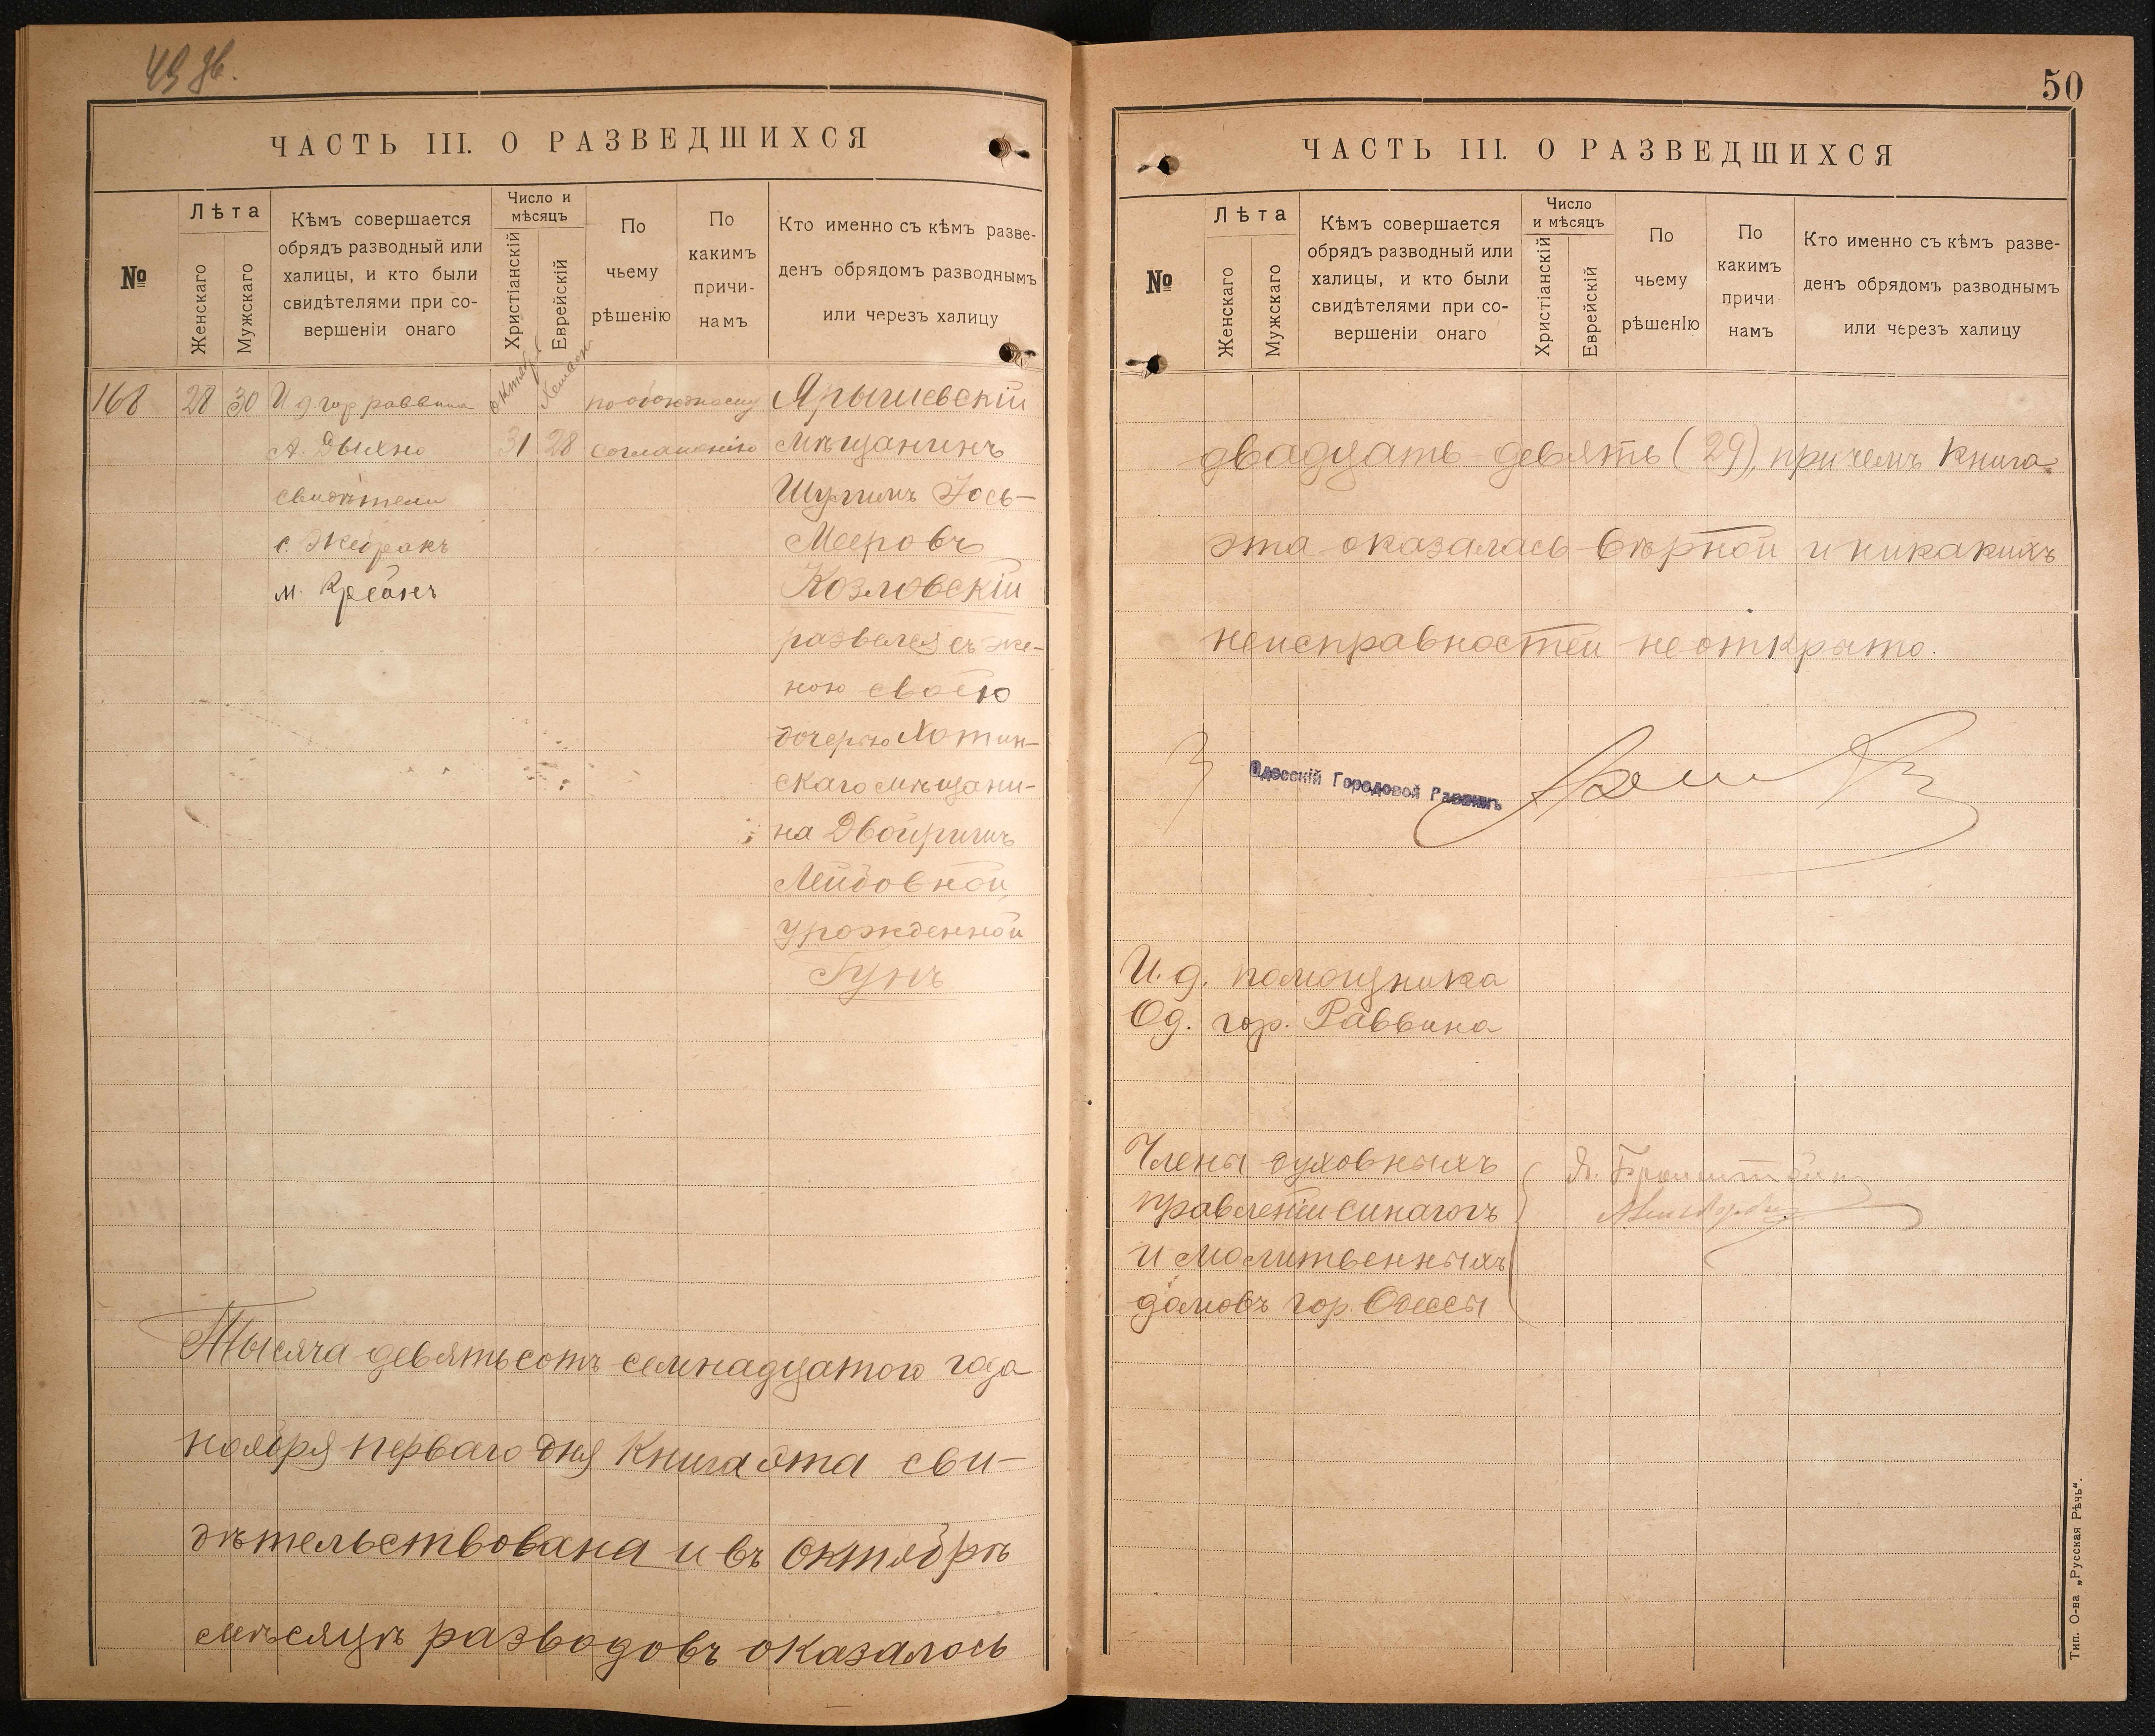 49 об.
ЧАСТЬ III. О РАЗВЕДШИХСЯ
№
Лѣта
Женскаго
Мужскаго
Кѣмъ совершается
обрядъ разводный или
халицы, и кто были
свидѣтелями при со-
вершеніи онаго
Число и
мѣсяцъ
Христіанскій
Еврейскій
По
чьему
рѣшенію
По
какимъ
причи-
намъ
Кто именно съ кѣмъ разве-
денъ обрядомъ разводнымъ
или черезъ халицу
168
28
30
И д. гор раввина
А. Дыхно
свидѣтели
с. Жеракъ
м. Крейнъ
октября
31
Хешвон
28
по обоюдному
соглашенію
Ярышевскій
мѣщанинъ
Шулимъ Іось-
Мееровъ
Козловскій
развелся съ же-
ною своею
дочерью Хотин-
скаго мѣщани-
на Двойримъ
Лейбовной,
урожденной
Гунъ
Тысяча девятьсотъ семнадцатого года
ноября перваго дня Книга эта сви-
дѣтельствована и въ октябрѣ
мѣсяцѣ разводовъ оказалось
50
ЧАСТЬ III. О РАЗВЕДШИХСЯ
№
Лѣта
Женскаго
Мужскаго
Кѣмъ совершается
обрядъ разводный или
халицы, и кто были
свидѣтелями при со-
вершеніи онаго
Число
и мѣсяцъ
Христіанскій
Еврейскій
По
чьему
рѣшенІю
По
какимъ
причи
намъ
Кто именно съ кѣмъ разве-
денъ обрядомъ разводнымъ
или черезъ халицу
двадцать девять (29), причемъ Книга
эта оказалась вѣрной и никакихъ
неисправностей не открыто.
Одесскій Городовой Раввинъ
И. д. помощника
Од. гор. Раввина
Члены духовныхъ
правленій синагогъ
и молитвенныхъ
домовъ гор. Одессы
Я. Бронштейн
Тип. О-ва „Русская Рѣчь“.